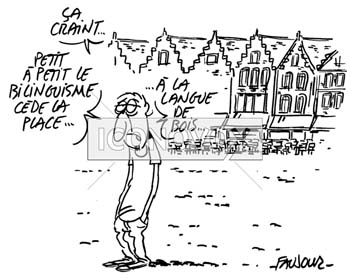 ÇA
CRAINT...
PETIT
À PETIT LE
BILINGUISME
CEDE LA
PLACE...
...À LA
LANGUE
DE
BOIS...
-FAUJOUR-